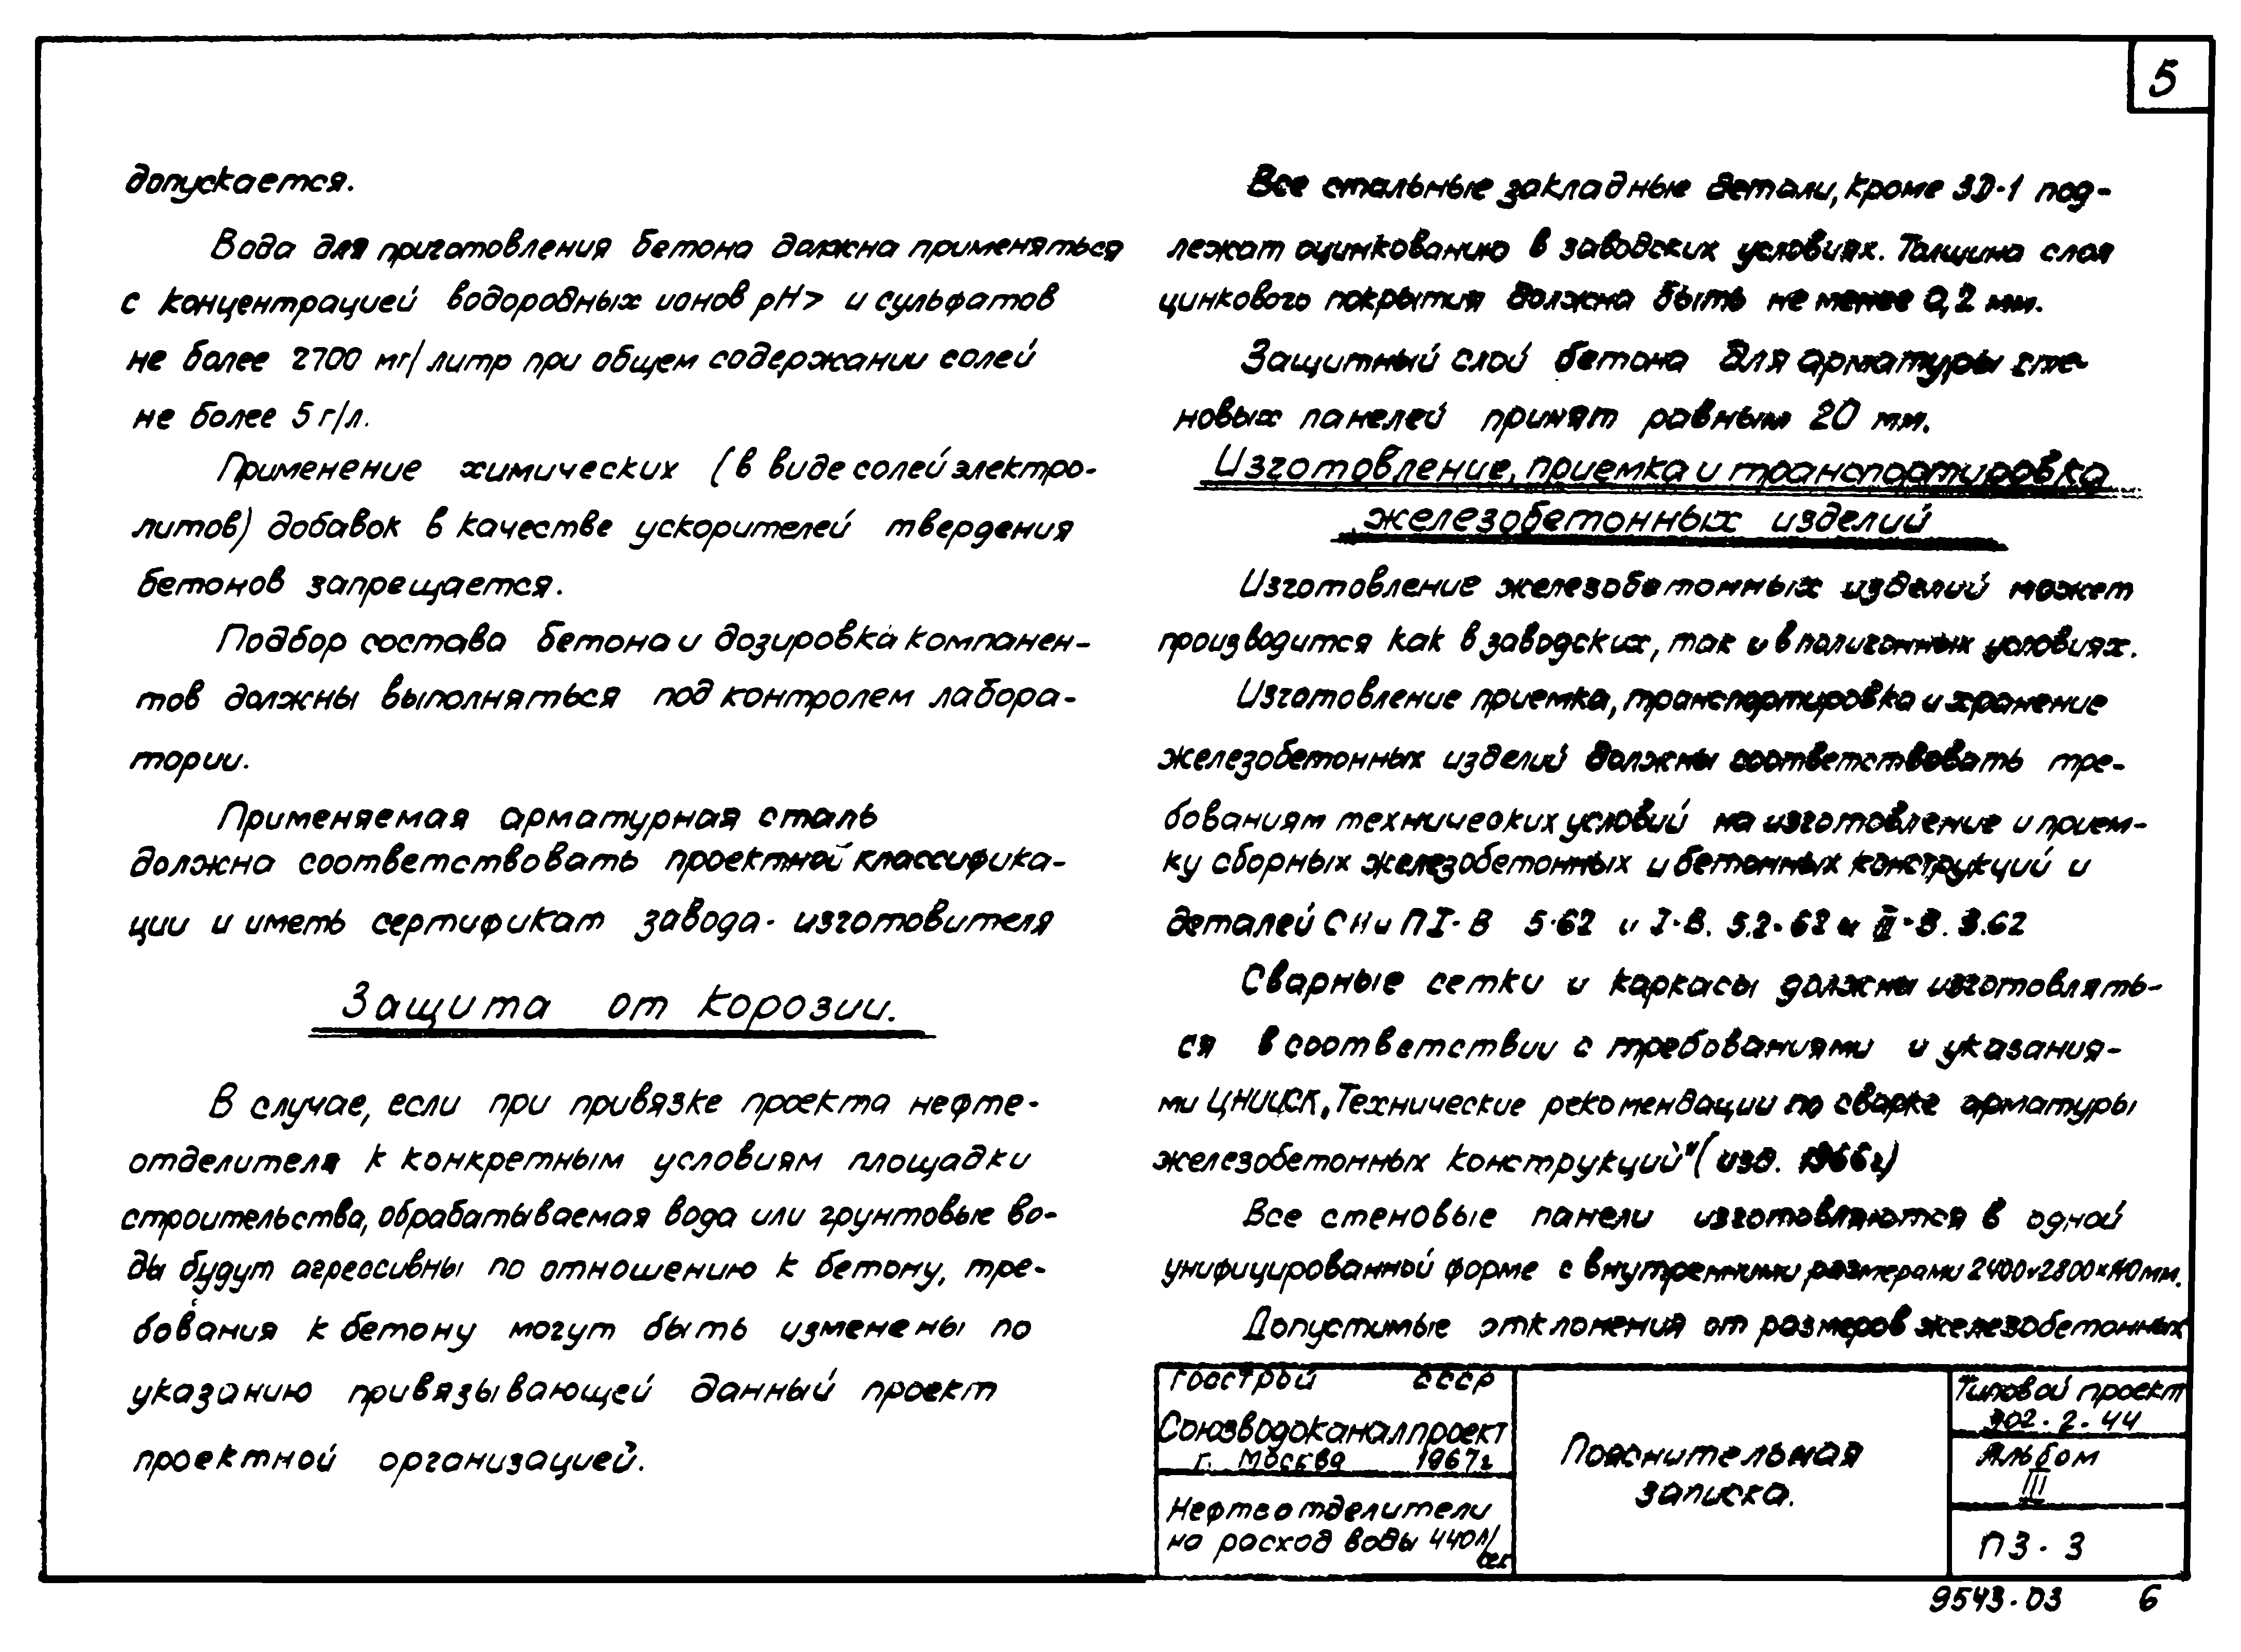 5
допускается.
Вода для приготовления бетона должна применяться
с концентрацией водородных ионов pH> и сульфатов
не более 2700 мг/литр при общем содержании солей
не более 5 г/л.
Применение химических (в виде солей электро-
литов) добавок в качестве ускорителей твердения
бетонов запрещается.
Подбор состава бетона и дозировка компанен-
тов должны выполняться под контролем лабора-
тории.
Применяемая арматурная сталь
должна соответствовать проектной классифика-
ции и иметь сертификат завода-изготовителя
Защита от корозии.
В случае, если при привязке проекта нефте-
отделителя к конкретным условиям площадки
строительства, обрабатываемая вода или грунтовые во-
ды будут агрессивны по отношению к бетону, тре-
бования к бетону могут быть изменены по
указанию привязывающей данный проект
проектной организацией.
Все стальные закладные детали, кроме ЗД-1 под-
лежат оцинкованию в заводских условиях. Толщина слоя
цинкового покрытия должна быть не менее 0,2 мм.
Защитный слой бетона для арматуры сте-
новых панелей принят равным 20 мм.
Изготовление, приемка и транспортировка
железобетонных изделий
Изготовление железобетонных изделий может
производится как в заводских, так и в полигонных условиях.
Изготовление приемка, транспортировка и хранение
железобетонных изделий должны соответствовать тре-
бованиям технических условий на изготовление и прием-
ку сборных железобетонных и бетонных конструкций и
деталей СНиП I-В 5-62 и I-В. 5.2-62 и III-В. 3.62
Сварные сетки и каркасы должны изготовлять-
ся в соответствии с требованиями и указания-
ми ЦНИИСК „Технические рекомендации по сварке арматуры
железобетонных конструкций" (изд. 1966г)
Все стеновые панели изготовляются в одной
унифицированной форме с внутренними размерами 2400×2800×140мм.
Допустимые отклонения от размеров железобетонных
Госстрой СССР
Союзводоканалпроект
г. Москва 1967г
Нефтеотделители
на расход воды 440л/сек
Пояснительная
записка.
Типовой проект
902-2-44
Альбом
III
ПЗ-3
9543-03 6